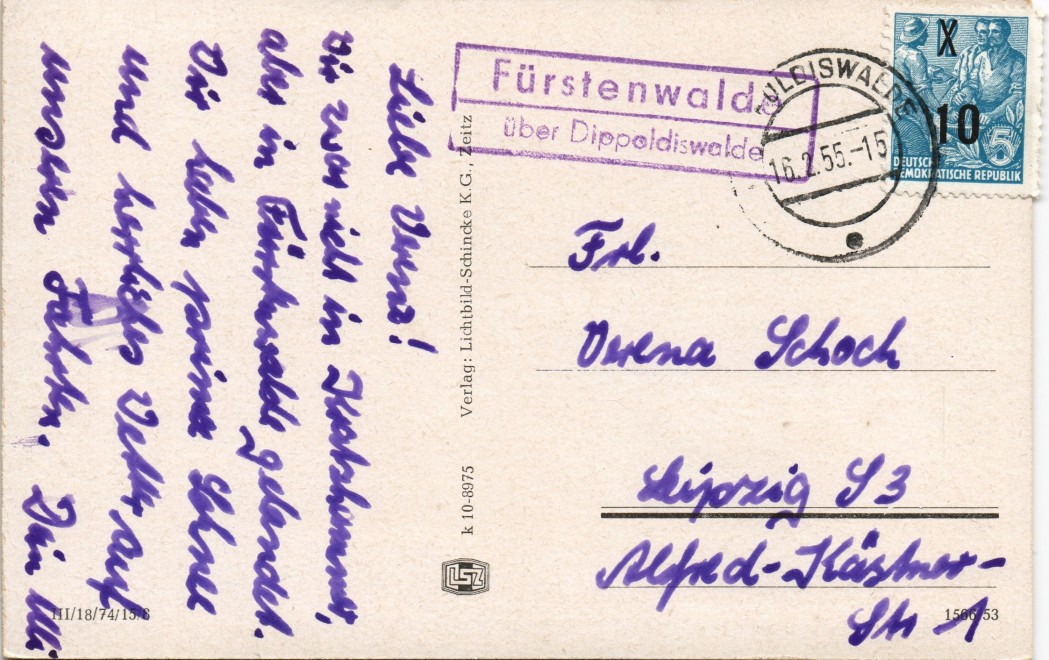 Liebe Verena!
Wir zwar nicht in
aber in Fürstenwalde gelandet.
Wir haben prima Schnee
und herrliches Wetter auf
unseren Fahrten. Dein
Fürstenwalde
über Dippoldiswalde
16.2.55.-15
X
10
5
DEUTSCHE
DEMOKRATISCHE REPUBLIK
Frl.
Verena Schoch
Leipzig S3
Alfred-Kästner-
Str 1
Verlag: Lichtbild-Schincke K.G., Zeitz
k 10-8975
LSZ
III/18/74/15/8
1566/53